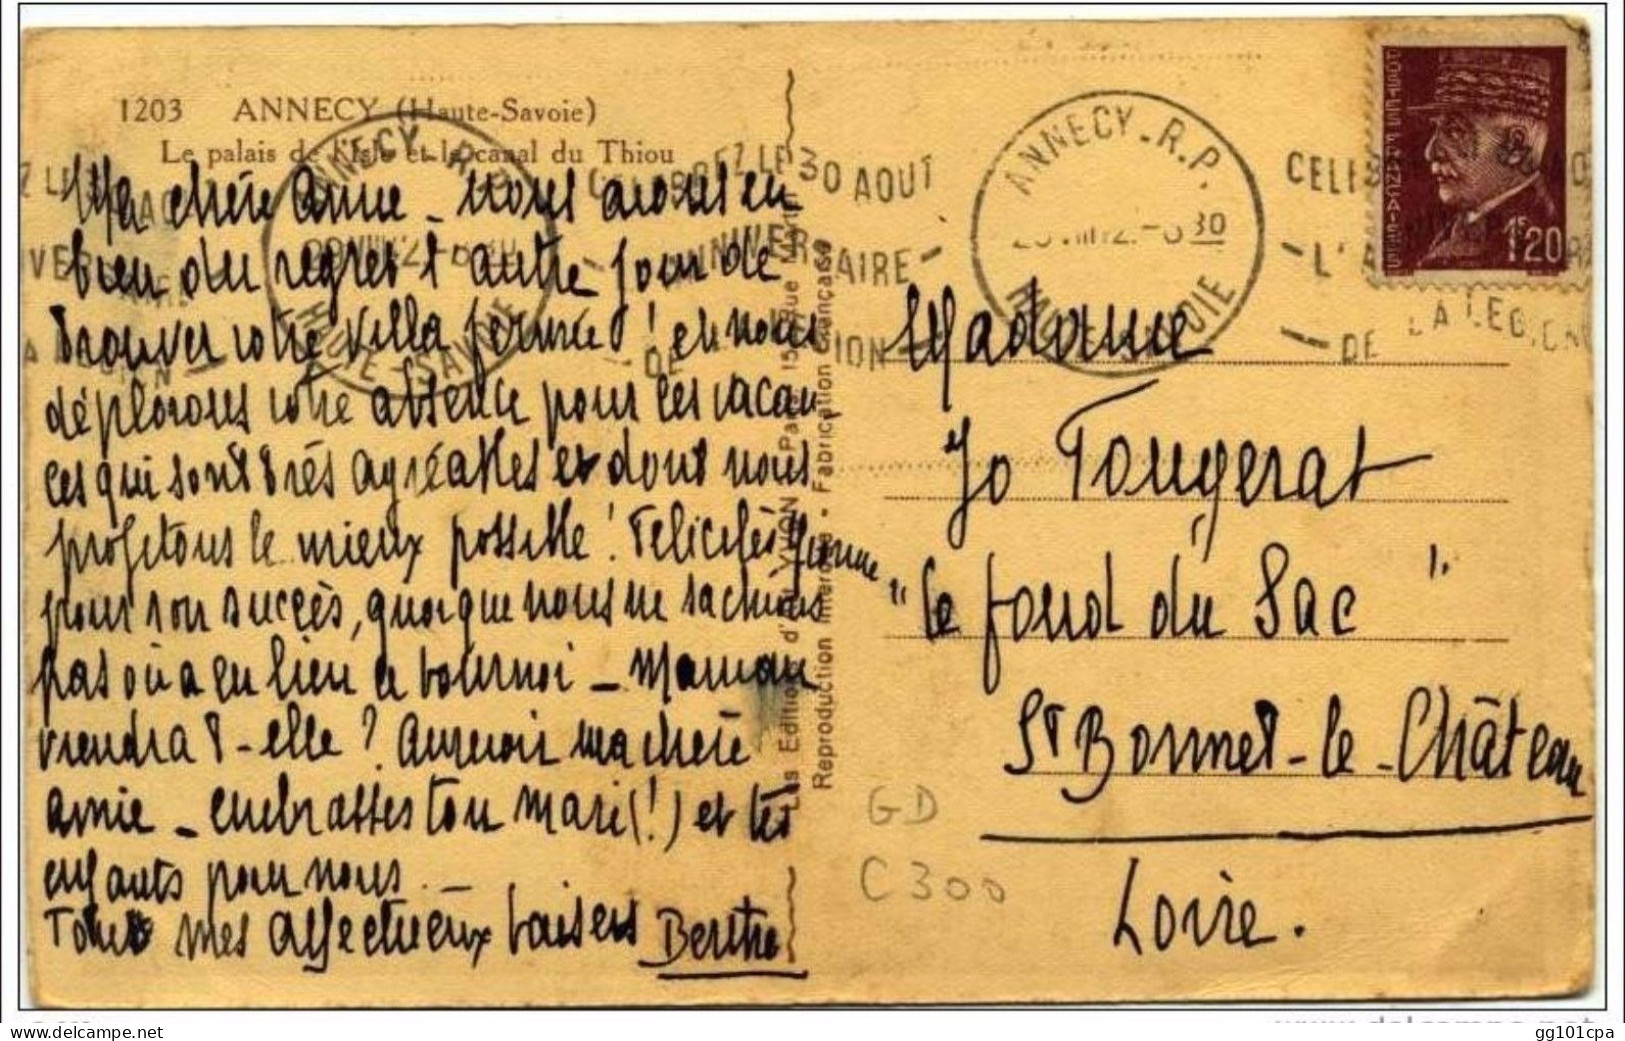 1203 ANNECY (Haute-Savoie)
Le palais de l'Isle et le canal du Thiou
Ma chère Anne - nous avons eu
bien du regret l'autre jour de
trouver votre villa fermée ! et nous
déplorons votre absence pour les vacan,
ces qui sont très agréables et dont nous
profitons le mieux possible ! Félicites
pour son succès, quoique nous ne sachions
pas où a eu lieu ce tournoi - Maman
viendra t-elle ? Au revoir ma chère
amie - embrasses ton mari (!) et tes
enfants pour nous. -
Tous mes affectueux baisers Berthe
Les Editions d'Art YVON Paris 15 Rue Martel
Reproduction interdite - Fabrication Française
ANNECY - R.P.
HAUTE-SAVOIE
CELEBREZ LE 30 AOUT
L'ANNIVERSAIRE
DE LA LEGION
ANNECY - R.P.
HAUTE-SAVOIE
POSTES FRANÇAISES
1F20
Madame
Jo Fougerat
"Le fond du Sac"
St Bonnet-le-Château
Loire.
GD
C300
gg101cpa